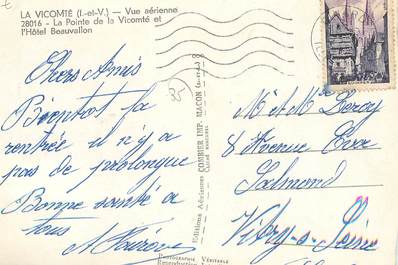 LA VICOMTÉ (I.-et-V.) — Vue aérienne
28016 - La Pointe de la Vicomté et
l'Hôtel Beauvallon
Chers Amis
Bientot la
rentrée il n'y a
pas de prolongue
Bonne santé a
tous
35
Editions Aériennes COMBIER IMP. MACON (S.-et-L.)
PHOTOGRAPHIE VÉRITABLE
Mr et Mme
8 Avenue Eva
Salmond
Vitry-s-Seine